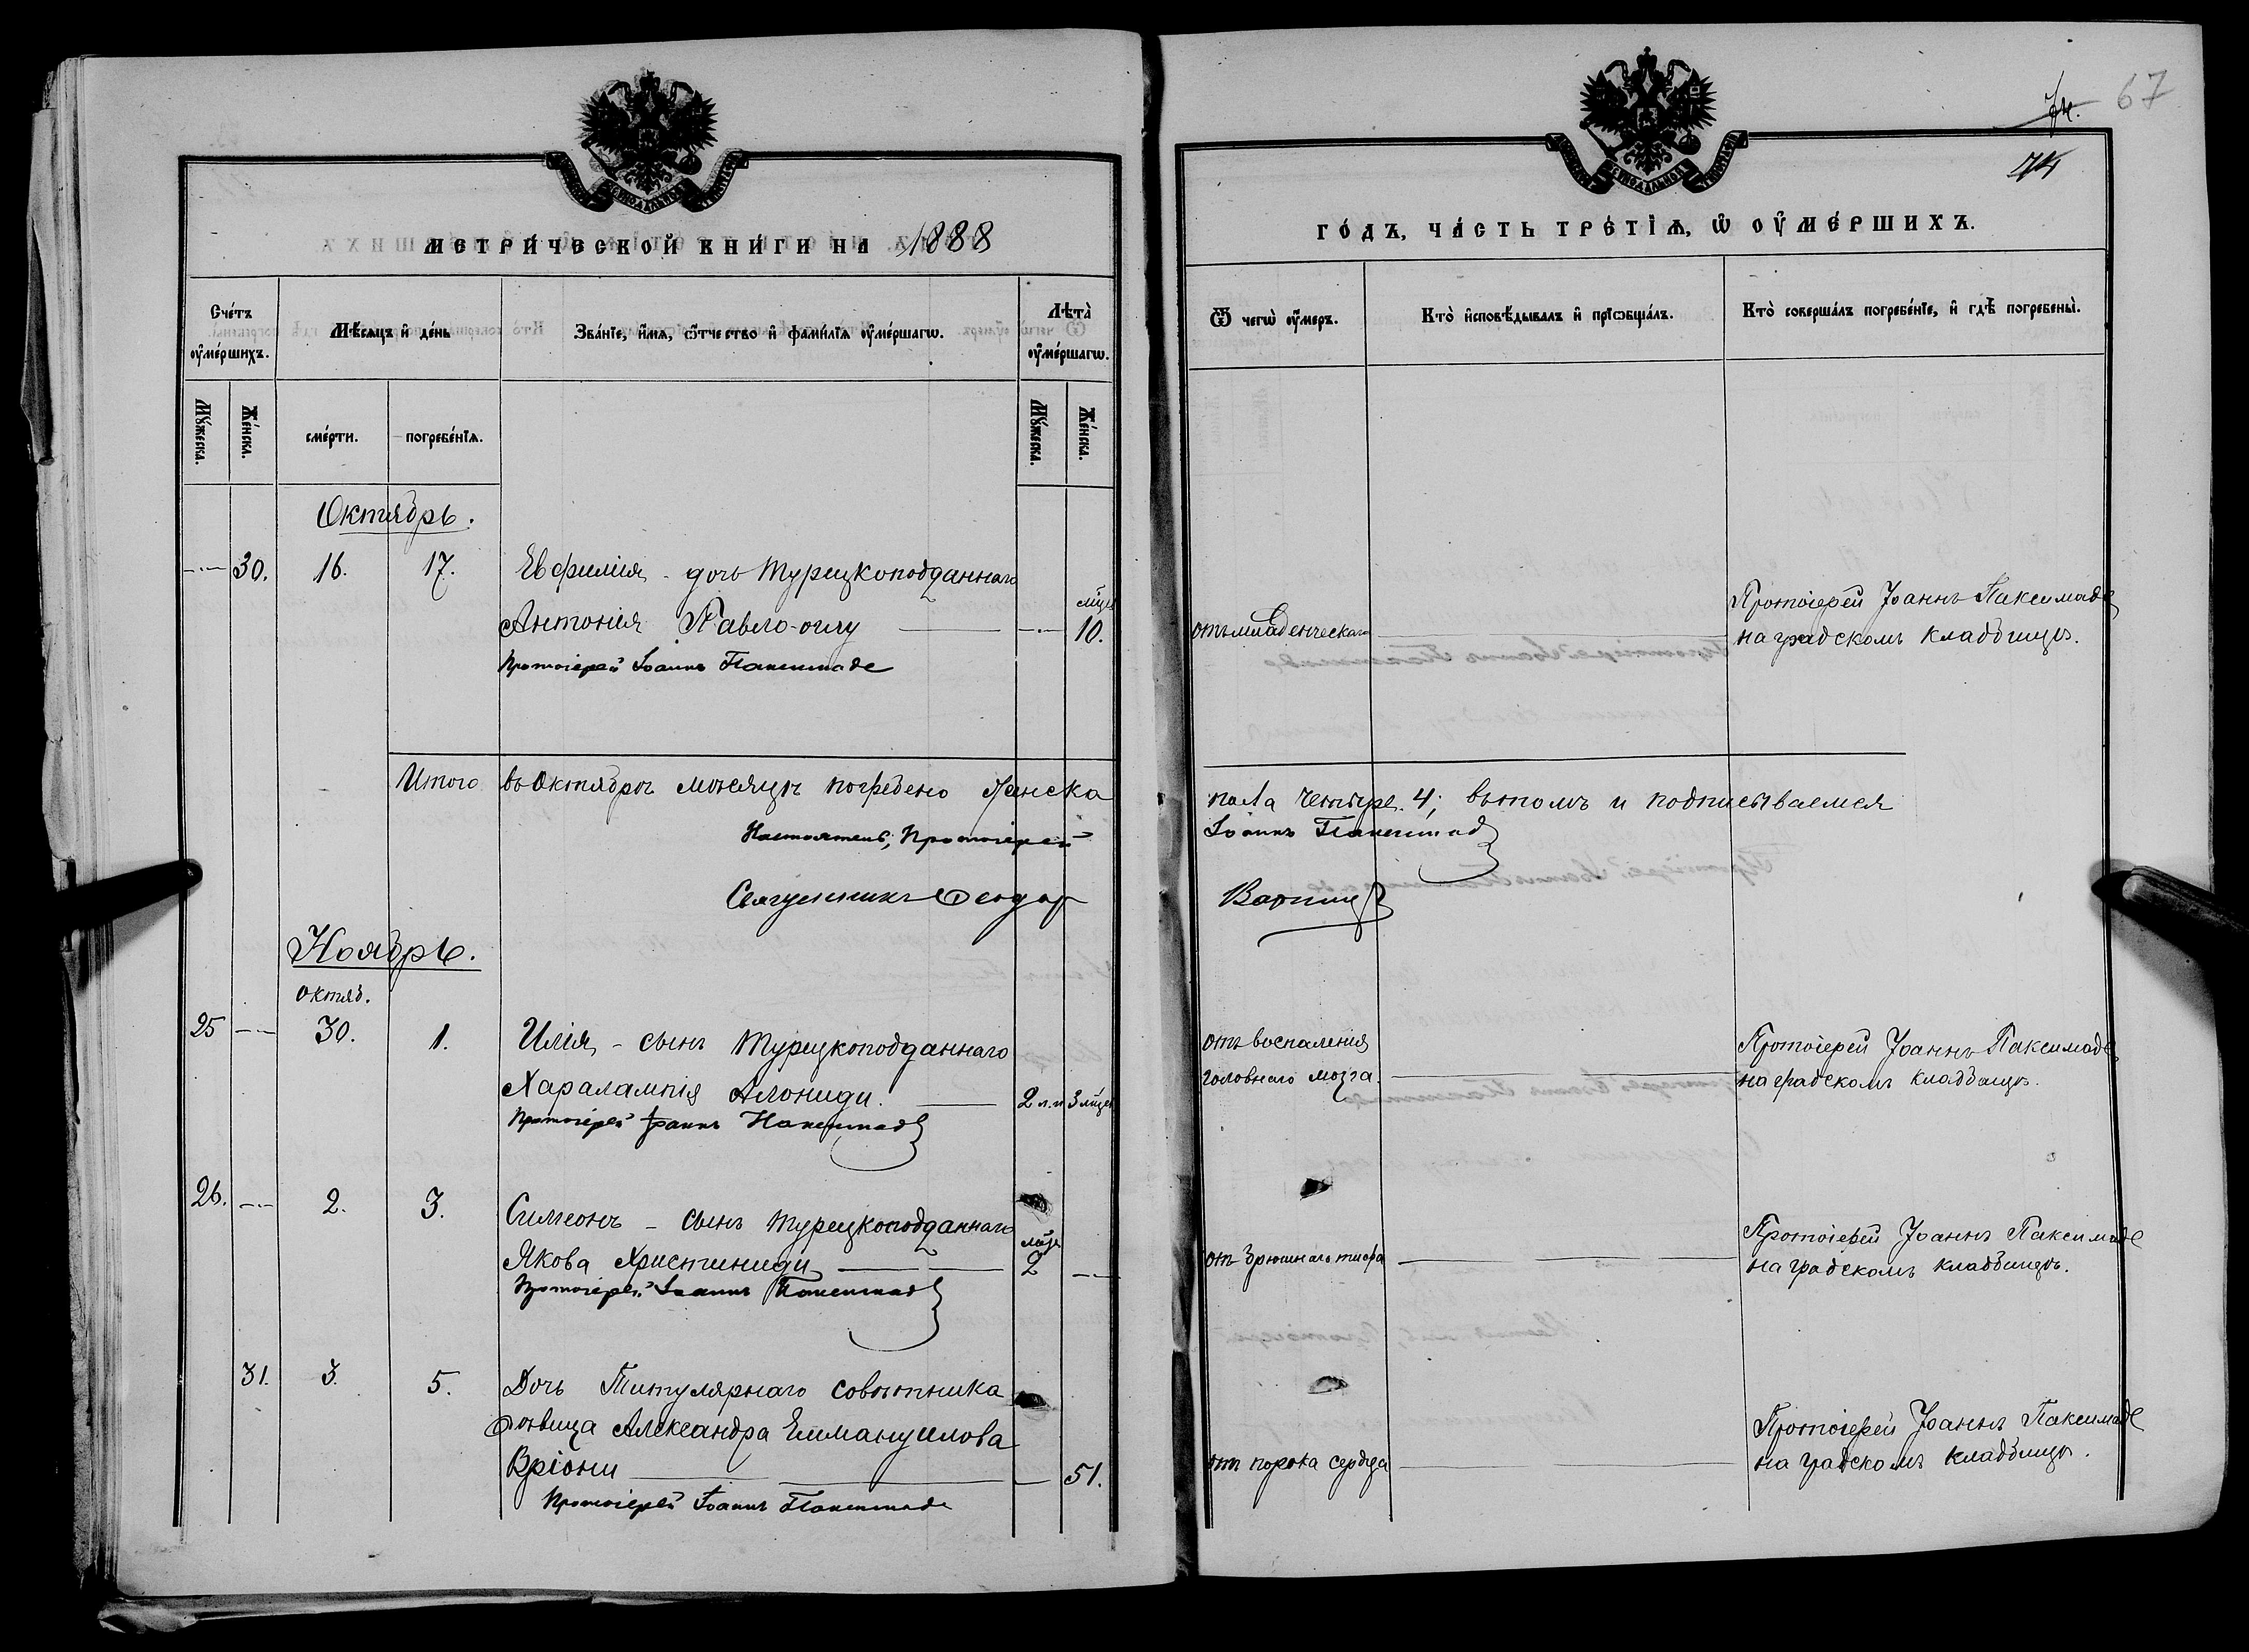 67
74.
74
МЕТРИЧЕСКОЙ КНИГИ НА 1888
ГОДЪ, ЧАСТЬ ТРЕТІѦ, Ѡ ОУМЕРШИХЪ.
Счетъ оумершихъ.
Мѣсѧцъ и день
Званіе, имѧ, ѿчество и фамиліѧ оумершагѡ.
Лѣта оумершагѡ.
Ѿ чегѡ оумеръ.
Кто исповѣдывалъ и пріѡбщалъ.
Кто совершалъ погребеніе, и гдѣ погребены.
Мужеска.
Женска.
смерти.
погребеніѧ.
Мужеска.
Женска.
Октябрь.
30. 16. 17. Евфимія - дочь Турецкоподданнаго
Антонія Павло-оглу мѣс. 10.
Протоіерей Іоаннъ Паксимаде
отъ младенческаго
Протоіерей Іоаннъ Паксимаде
на градскомъ кладбищѣ.
Итого въ Октябрѣ мѣсяцѣ погребено женска
пола четыре. 4; въ томъ и подписываемся
Настоятель, Протоіерей Іоаннъ Паксимаде
Священникъ Феодор
Ноябрь.
октяб.
25 30. 1. Илія - сынъ Турецкоподданнаго
Харалампія Алониди. 2 л. и 3 мѣс.
Протоіерей Іоаннъ Паксимаде
отъ воспаленія
головнаго мозга.
Протоіерей Іоаннъ Паксимаде
на градскомъ кладбищѣ.
26. 2. 3. Симеонъ - сынъ Турецкоподданнаго
Якова Христиниди мѣс. 2
Протоіерей Іоаннъ Паксимаде
отъ брюшнаго тифа
Протоіерей Іоаннъ Паксимаде
на градскомъ кладбищѣ.
31. 3. 5. Дочь Титулярнаго совѣтника
дѣвица Александра Еммануилова
Вріони 51.
Протоіерей Іоаннъ Паксимаде
отъ порока сердца
Протоіерей Іоаннъ Паксимаде
на градскомъ кладбищѣ.